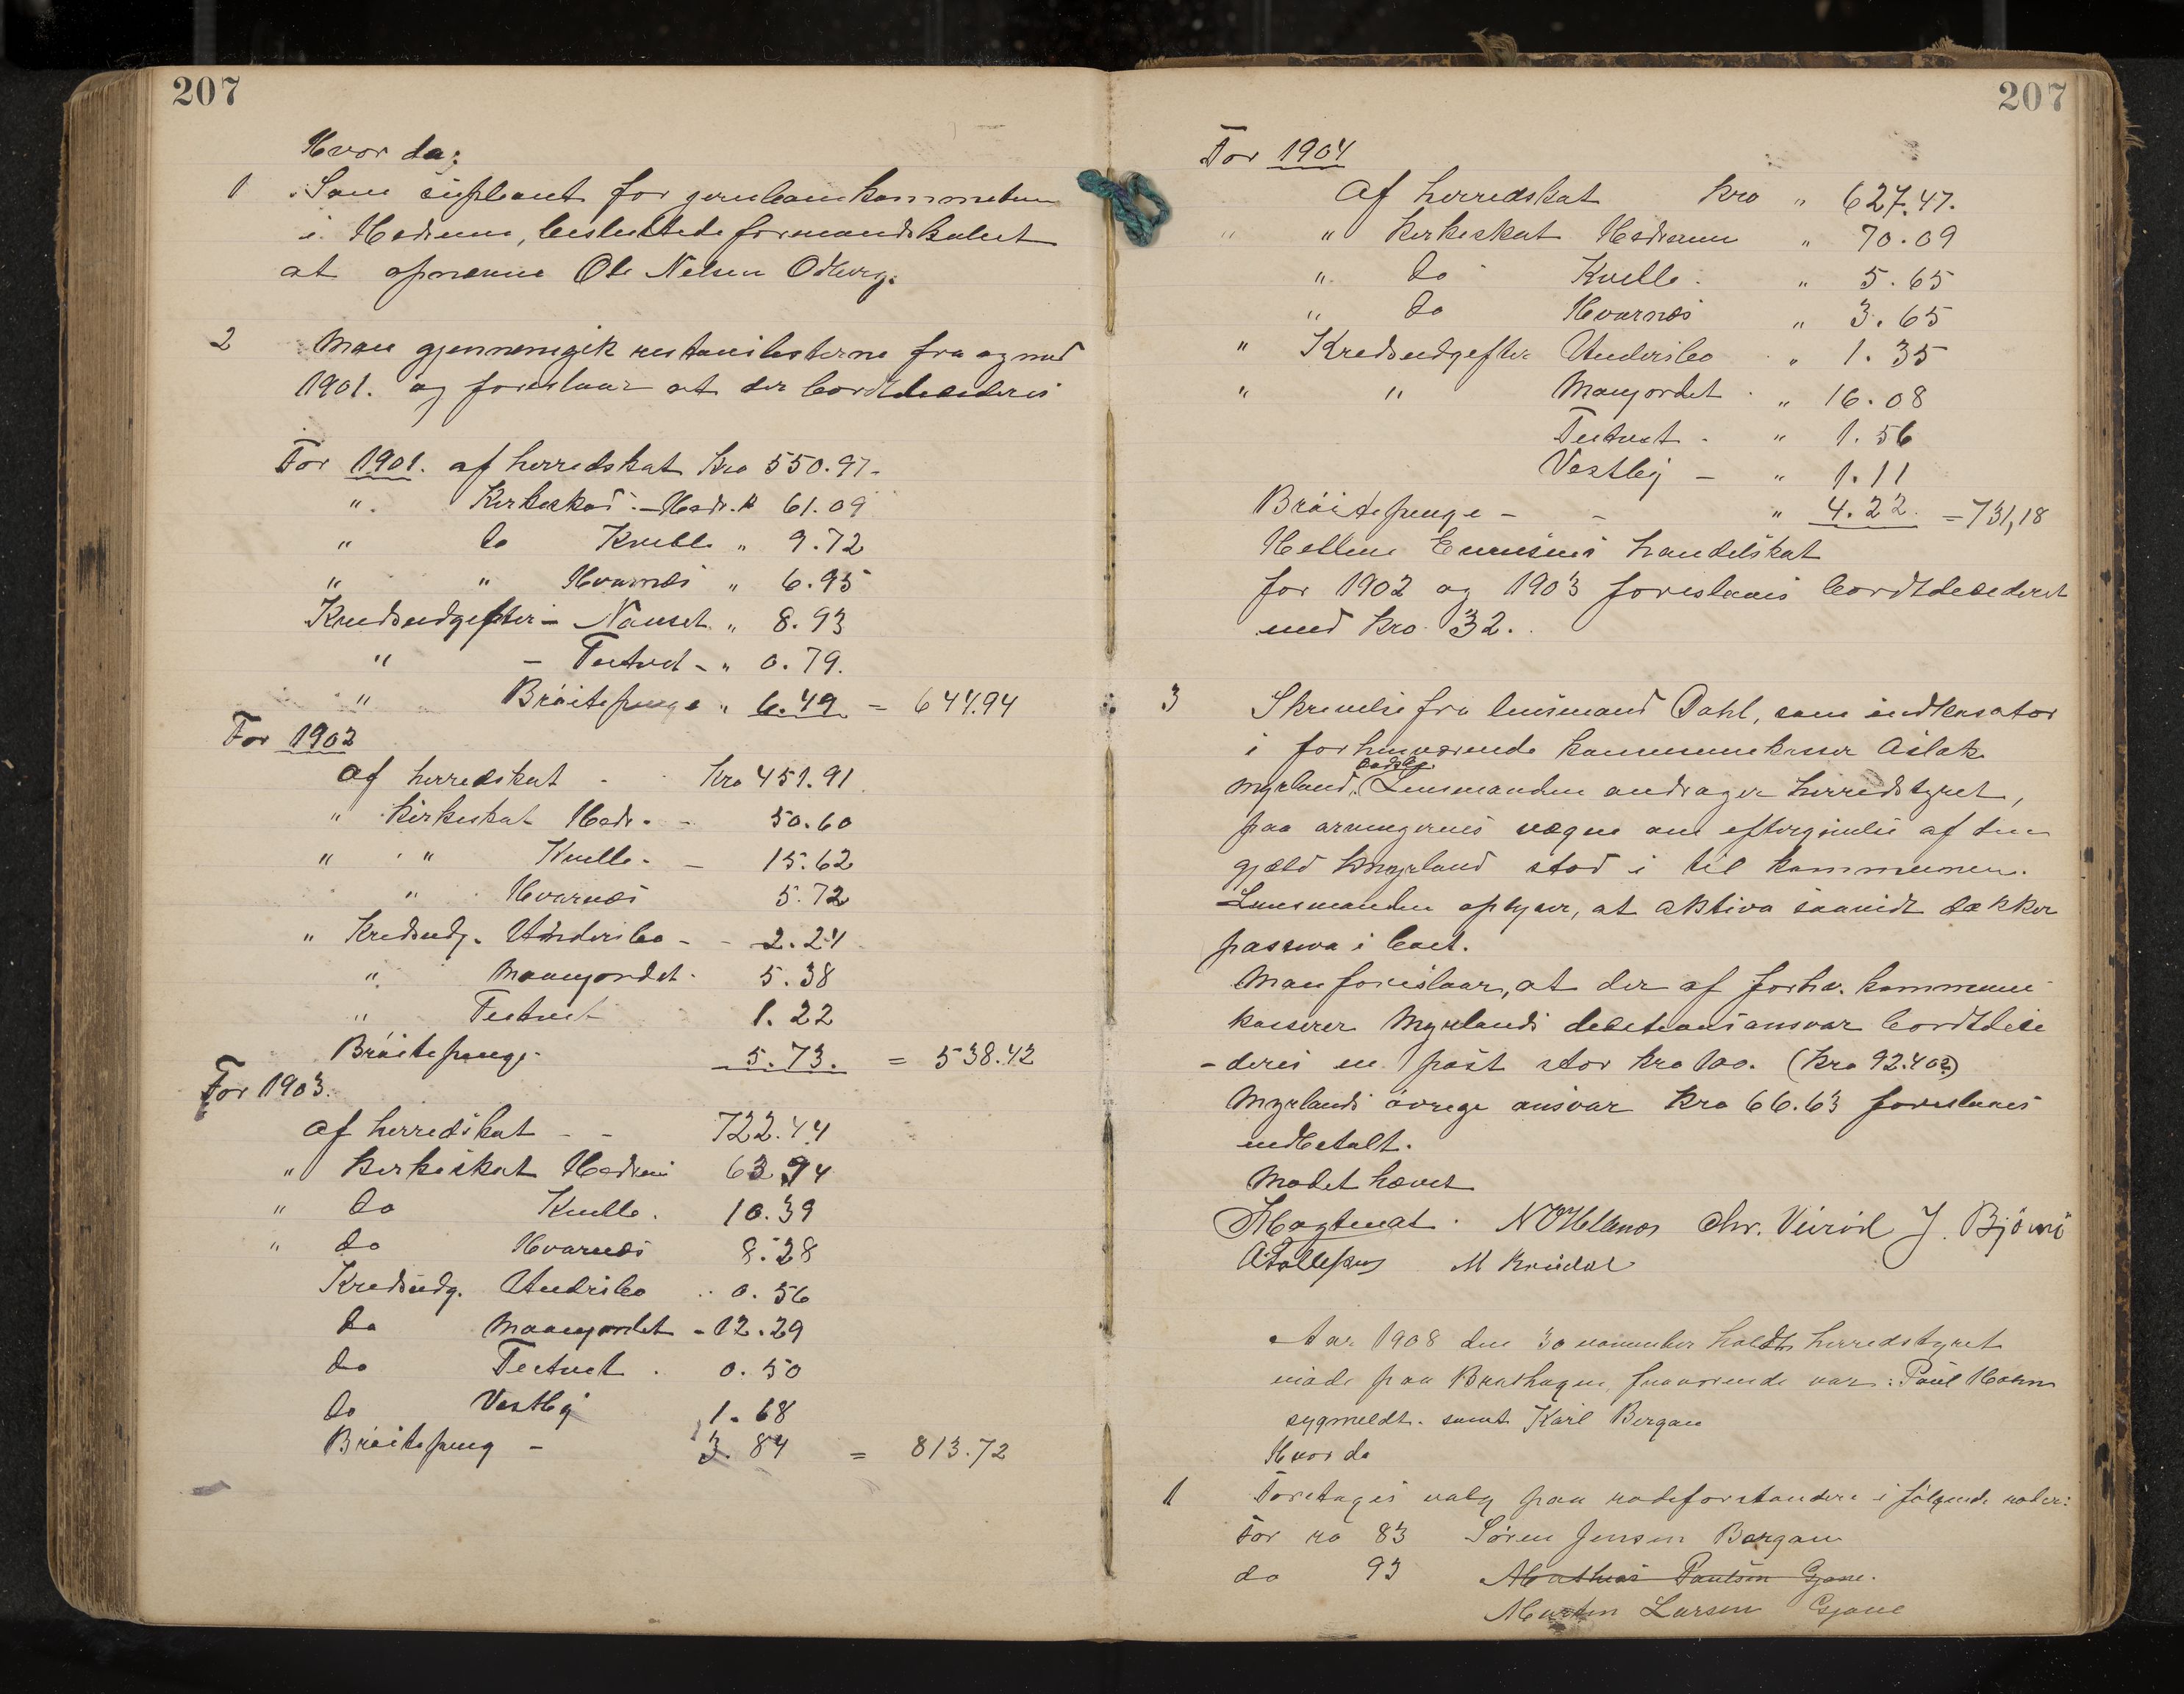 207
Hvor da:
1 Som supleant for jernbanekommeteen
i Hedrum, besluttede formandskabet
at opnævne Ole Nelsen Odberg.
2 Man gjennemgik restanselisterne fra og med
1901. og foreslaar at der bortdeseideres
For 1901. af herredskat Kro 550.97
" Kirkeskat - Hedr. " 61.09
" Do Kvelle " 9.72
" " Hvarnes " 6.95
Kredsudgifter - Nanset " 8.93
" - Teitvet - " 0.79.
" Bröitepenge " 6.49 = 644.94
For 1902
Af herredskat - Kro 451.91
" Kirkeskat Hedr. - 50.60
" " Kvelle - - 15.62
" Hvarnes 5.72
" Kredsudg. Undersbo - - 2.24
" Maanejordet - 5.38
" Teitvet 1.22
Bröitepenge 5.73. = 538.42
For 1903.
Af herredskat - - 722.44
" Kirkeskat Hedrum 63.74
" Do Kvelle. 10.39
" do Hvarnes 8.28
Kredsudg. Undersbo .. 0.56
Do Maanejordet - 12.29
Do Teitvet . 0.50
Do Vestby 1.68
Bröitepeng - 3.84 = 813.72
207
For 1904
Af herredskat Kro " 627.47.
" " Kirkeskat Hedrum " 70.09
" Do Kvelle. " 5.65
" Do Hvarnes " 3.65
" Kredsudgifter Undersbo " 1.35
" " Manejordet " 16.08
Teitvet - " 1.56
Vestby - " 1.11
Bröitepenge - - " 4.22. = 731,18
Hellene handelskat
for 1902 og 1903 foreslaaes bortdesederet
med Kro 32.
3 Skrivelse fra lensmand Dahl, som indkasator
i forhenværende kommunekasser Aslak
Myrland dødsbo. Lensmanden andrager herredstyret,
paa arvingernes vegne om eftergivelse af den
gjæld Myrland stod i til kommunen.
Lensmanden oplyser, at aktiva saavidt dækker
passiva i boet.
Man foreslaar, at der af forhv. kommune
kasserer Myrlands debetsansvar bortdese
-deres en post stor Kro 100. (Kro 92.40?)
Myrlands övrige ansvar Kro 66.63 foreslaaes
indbetalt.
Mødet hævet
N O Helgenæs Chr. Veierød J. Bjørnø
A Tollefsen M Kvisdal
Aar 1908 den 30 november holdtes herredstyret
möde paa Brathagen, fraværende var: Paul Holm
sygmeldt. samt Karl Bergan
Hvor da
1 Foretages valg paa rodeforstandere i følgende roder:
For ro 83 Søren Jensen Bergan
do 93 Mathias Paulsen Gjone.
Martin Larsen Gjone